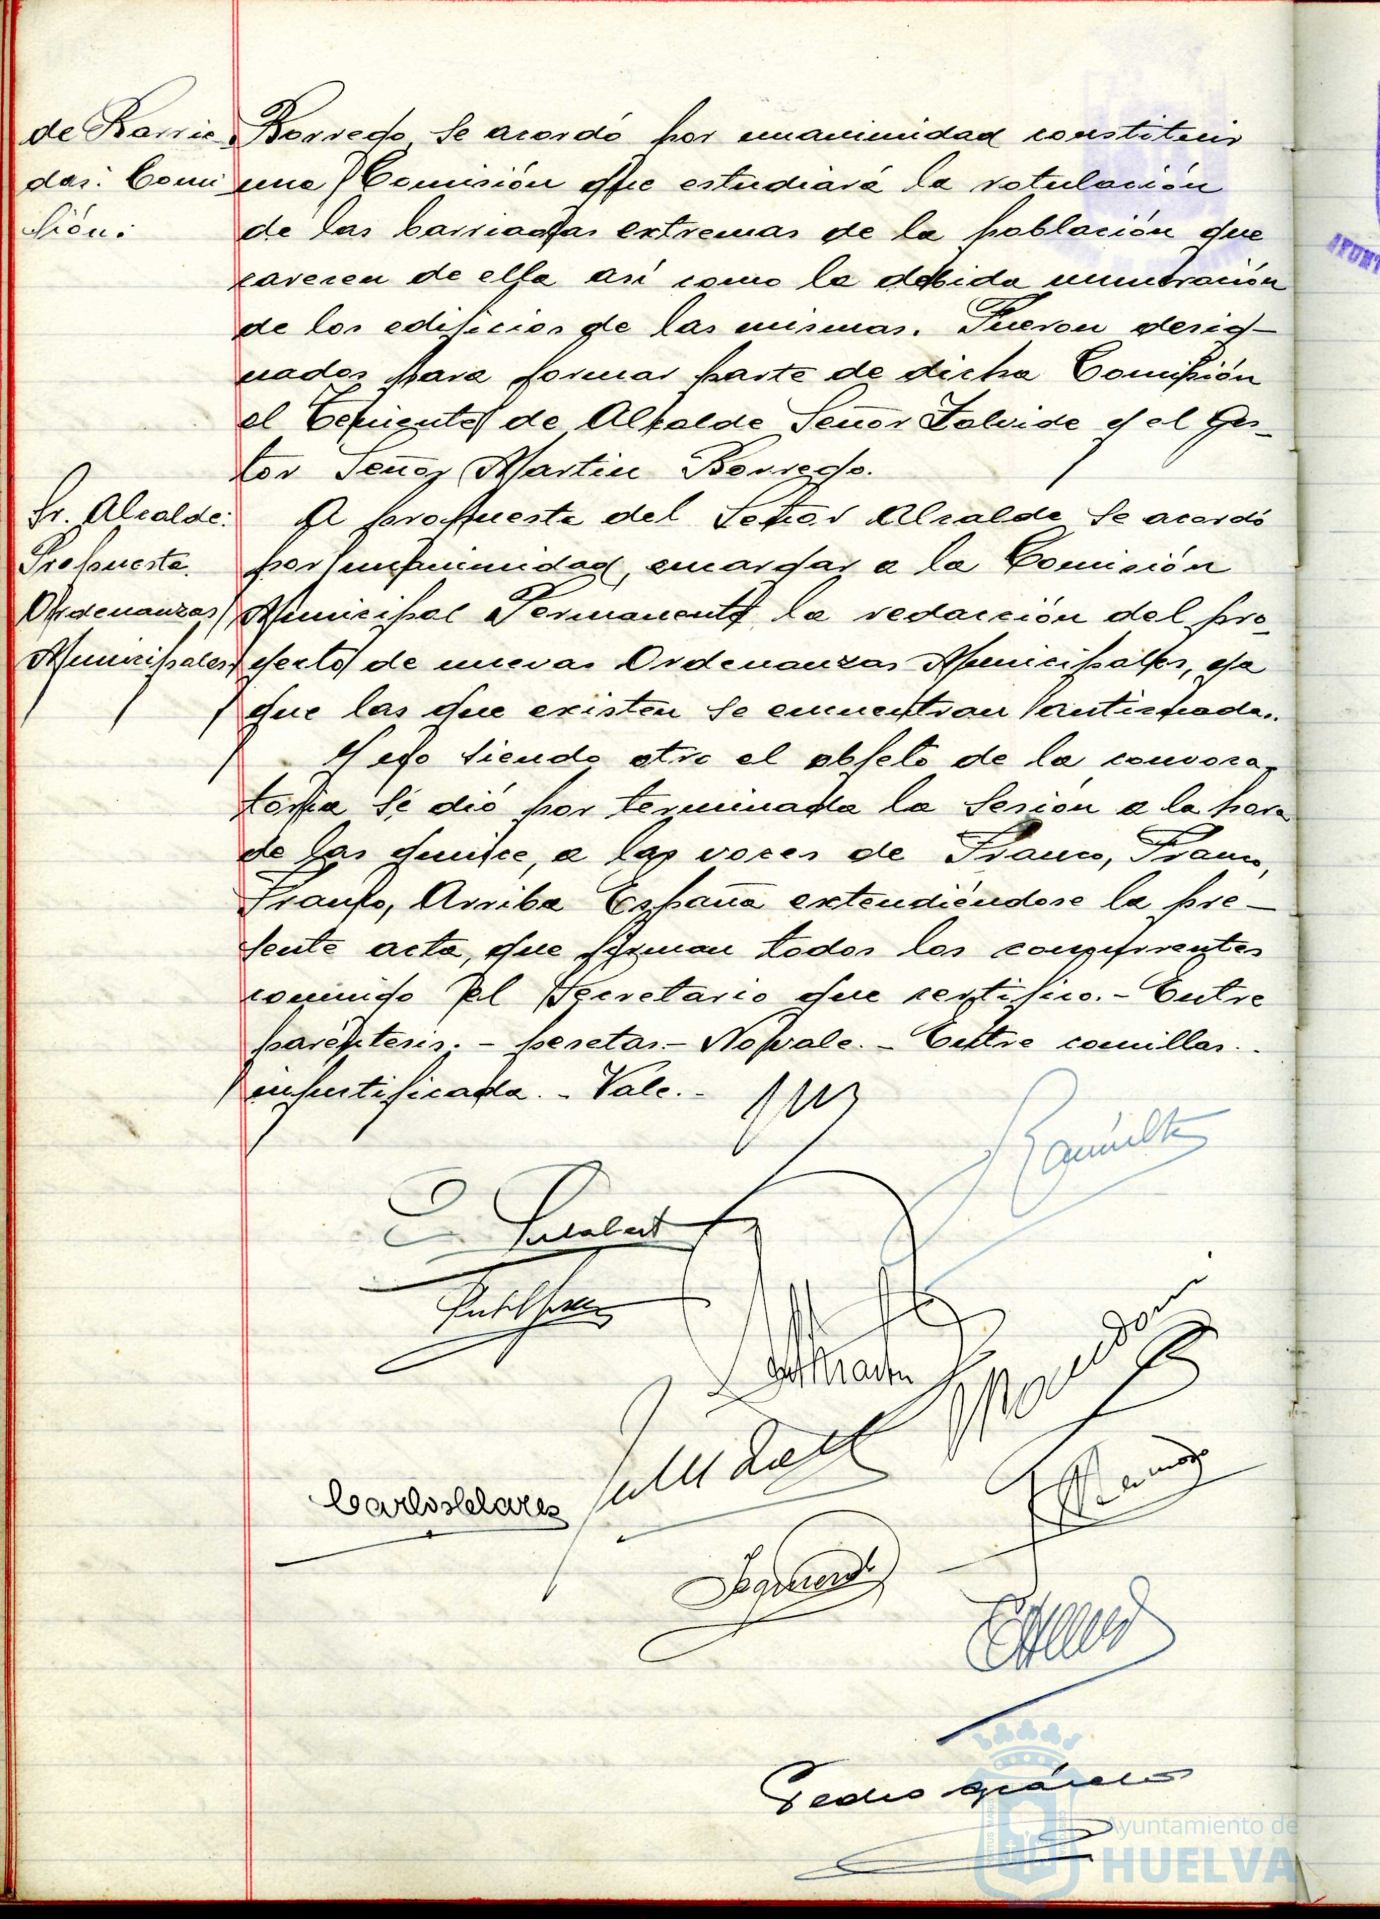 de Barria
das: Comi
sión:
Borrego se acordó por unanimidad constituir
una Comisión que estudiará la rotulación
de las barriadas extremas de la población que
carecen de ella así como la debida numeración
de los edificios de las mismas. Fueron desig-
nados para formar parte de dicha Comisión
el Teniente de Alcalde Señor y el Ges-
tor Señor Martin Borrego.
Sr. Alcalde:
Propuesta.
Ordenanzas
Municipales
A propuesta del Señor Alcalde se acordó
por unanimidad, encargar a la Comisión
Municipal Permanente la redacción del pro-
yecto de nuevas Ordenanzas Municipales, ya
que las que existen se encuentran anticuadas.
Y no siendo otro el objeto de la convoca-
toria se dió por terminada la sesión a la hora
de las quince, a las voces de Franco, Franco,
Franco, Arriba España extendiéndose la pre-
sente acta, que firman todos los concurrentes
conmigo el Secretario que certifico.- Entre
paréntesis.- pesetas.- No vale.- Entre comillas.-
injustificada.- Vale.-
Izquierdo
Pedro
Ayuntamiento de
HUELVA